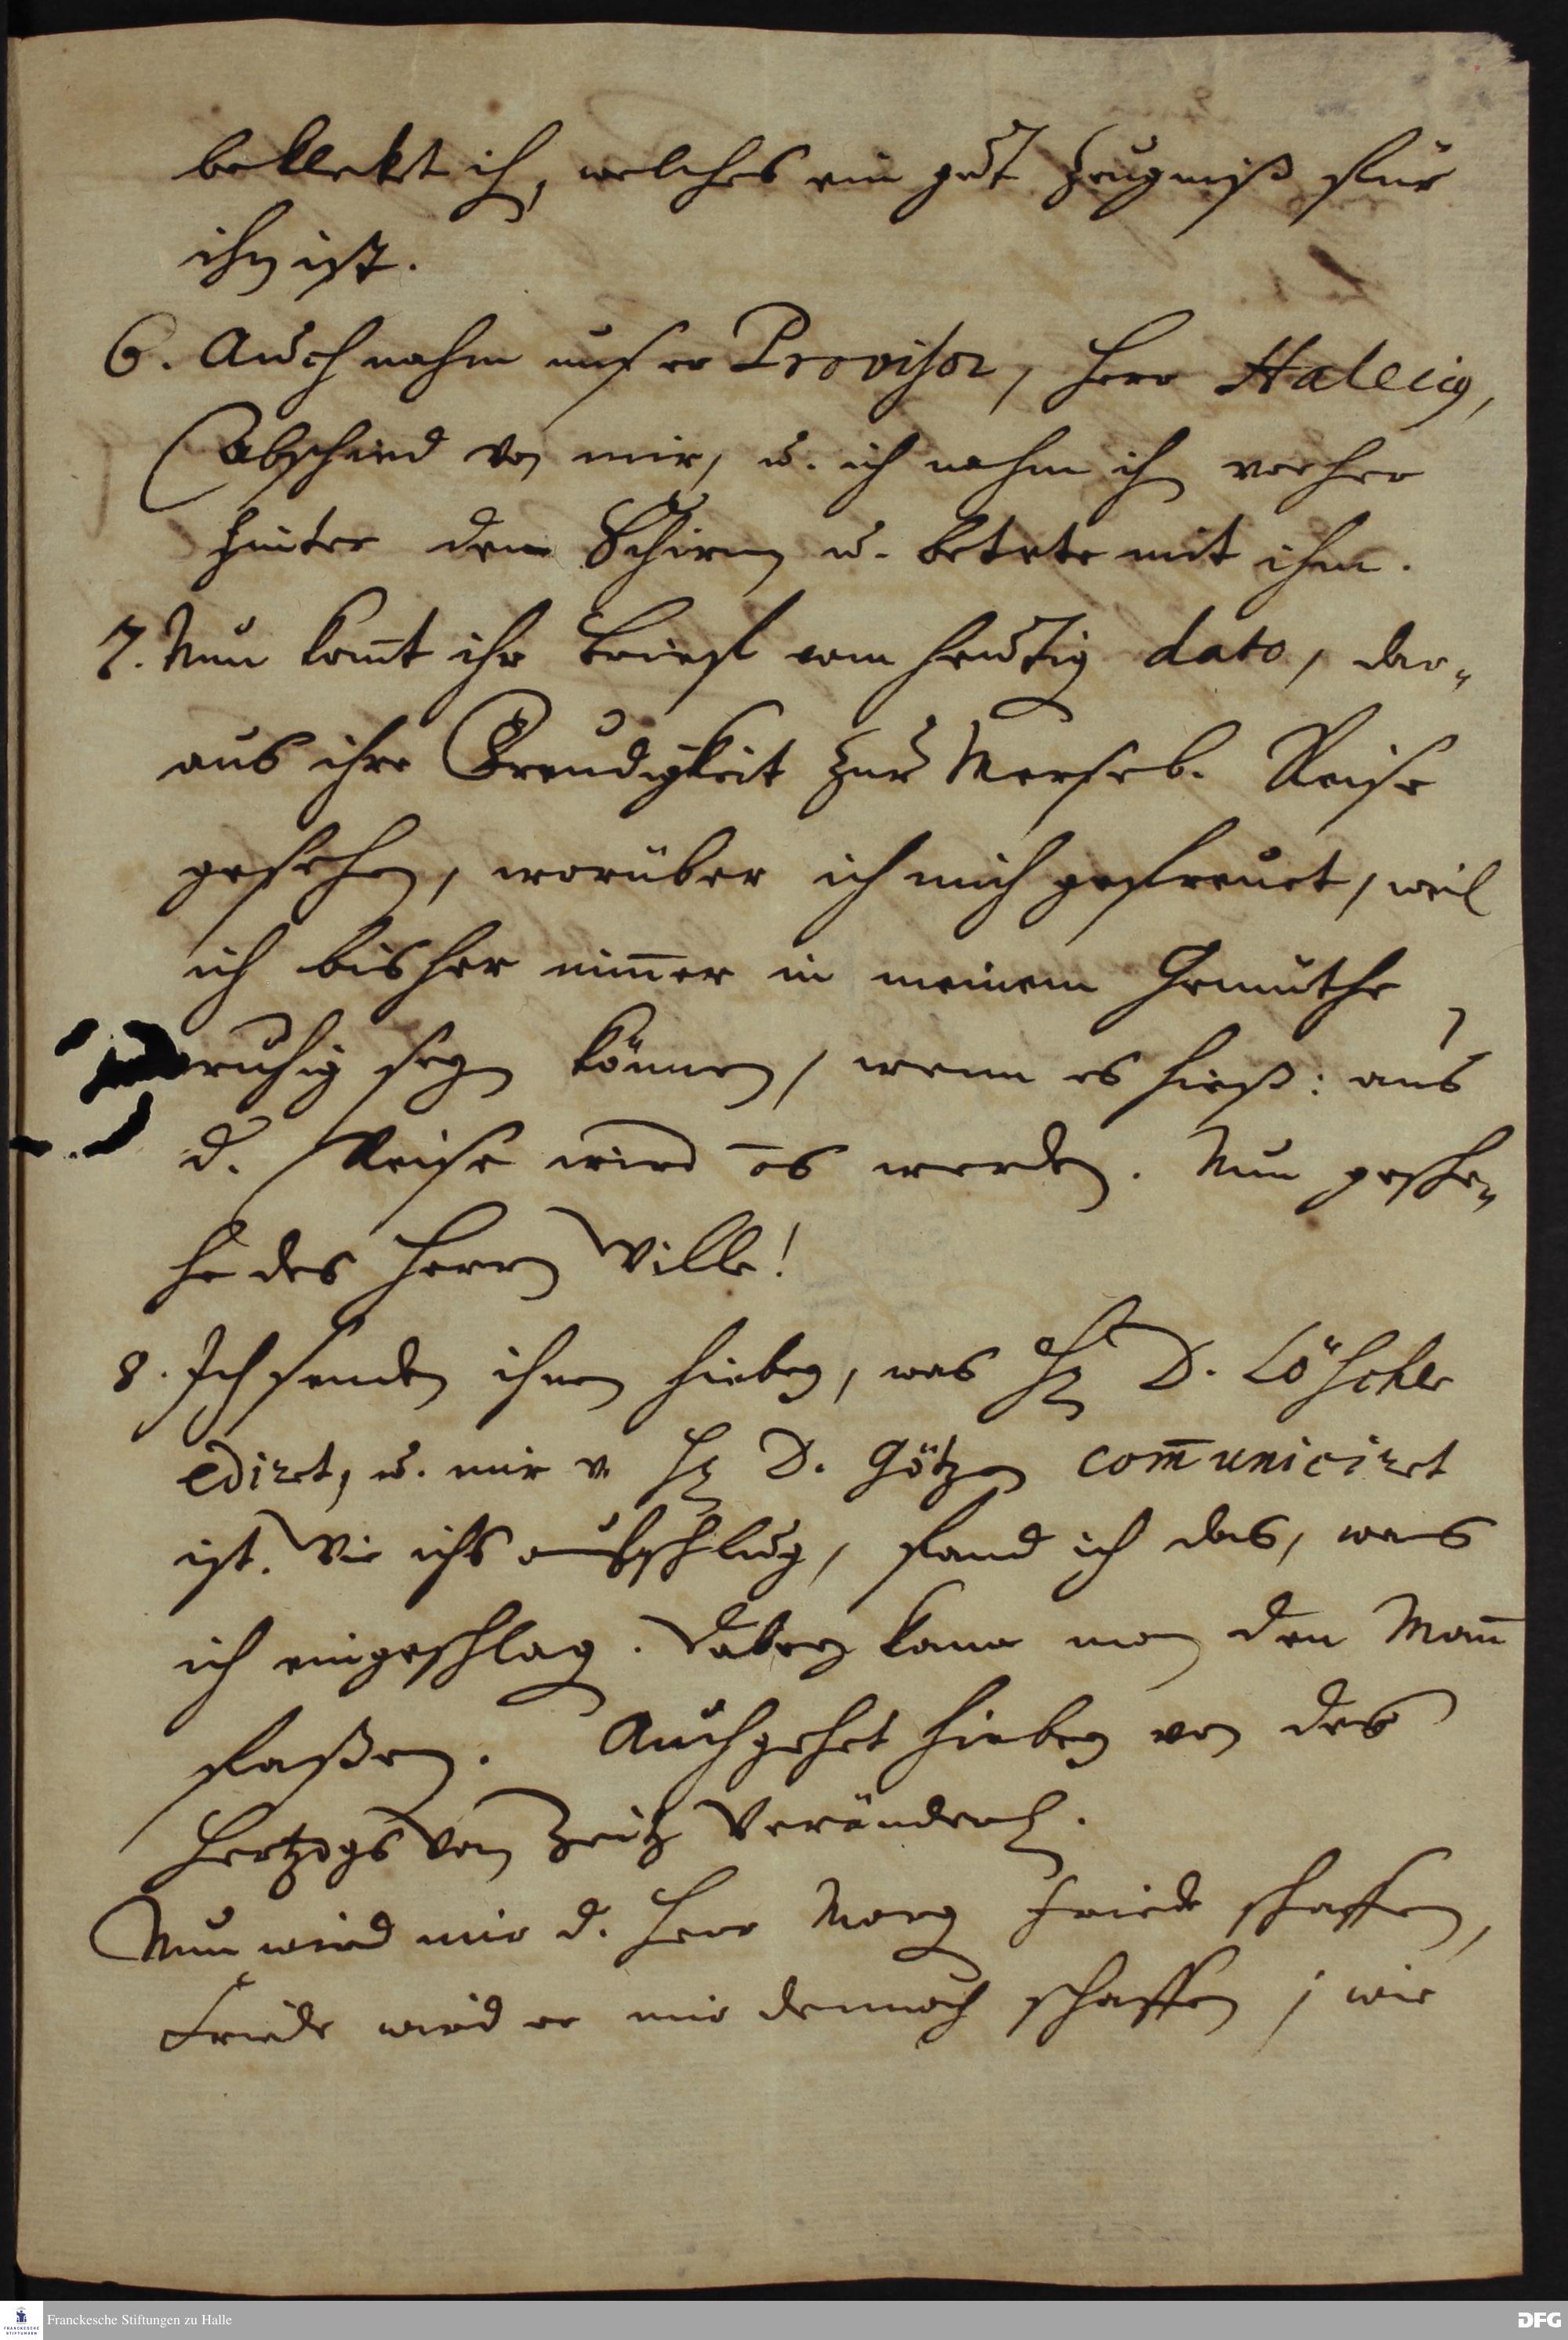 bekleket ih, welches ein gut Zeugniß für
ihn ist.
6. Auch nahm unser Provisor, Herr
Abschied von mir, u. ich nahm ihn vorher
hinter den Schirm u. betete mit ihm.
7. Nun komt ihr Brief vom heutig dato, dar„
aus ihre Freudigkeit zur Merseb. Reise
gesehen, worüber ich mich gefreuet, weil
ich bisher nimer in meinem Gemüthe
ruhig seyn können, wenn es hieß: aus
d. Reise wird es werden. Nun gesche„
he des Herrn Wille!
8. Ich sende ihnen hiebey, was H D. Löscher
ediret, u. mir v. H D. Götzen comuniciret
ist. Wie ichs aufschlug, fand ich das, was
ich eingeschlag. Dabey kann man den Man
faßen. Auch gehet hiebey von des
Hertzogs von Zeitz Veränder.
Nun wird mir d. Herr Morg Friede schaffen,
Friede wird er mir dennoch schaffen, wie
Franckesche Stiftungen zu Halle
DFG